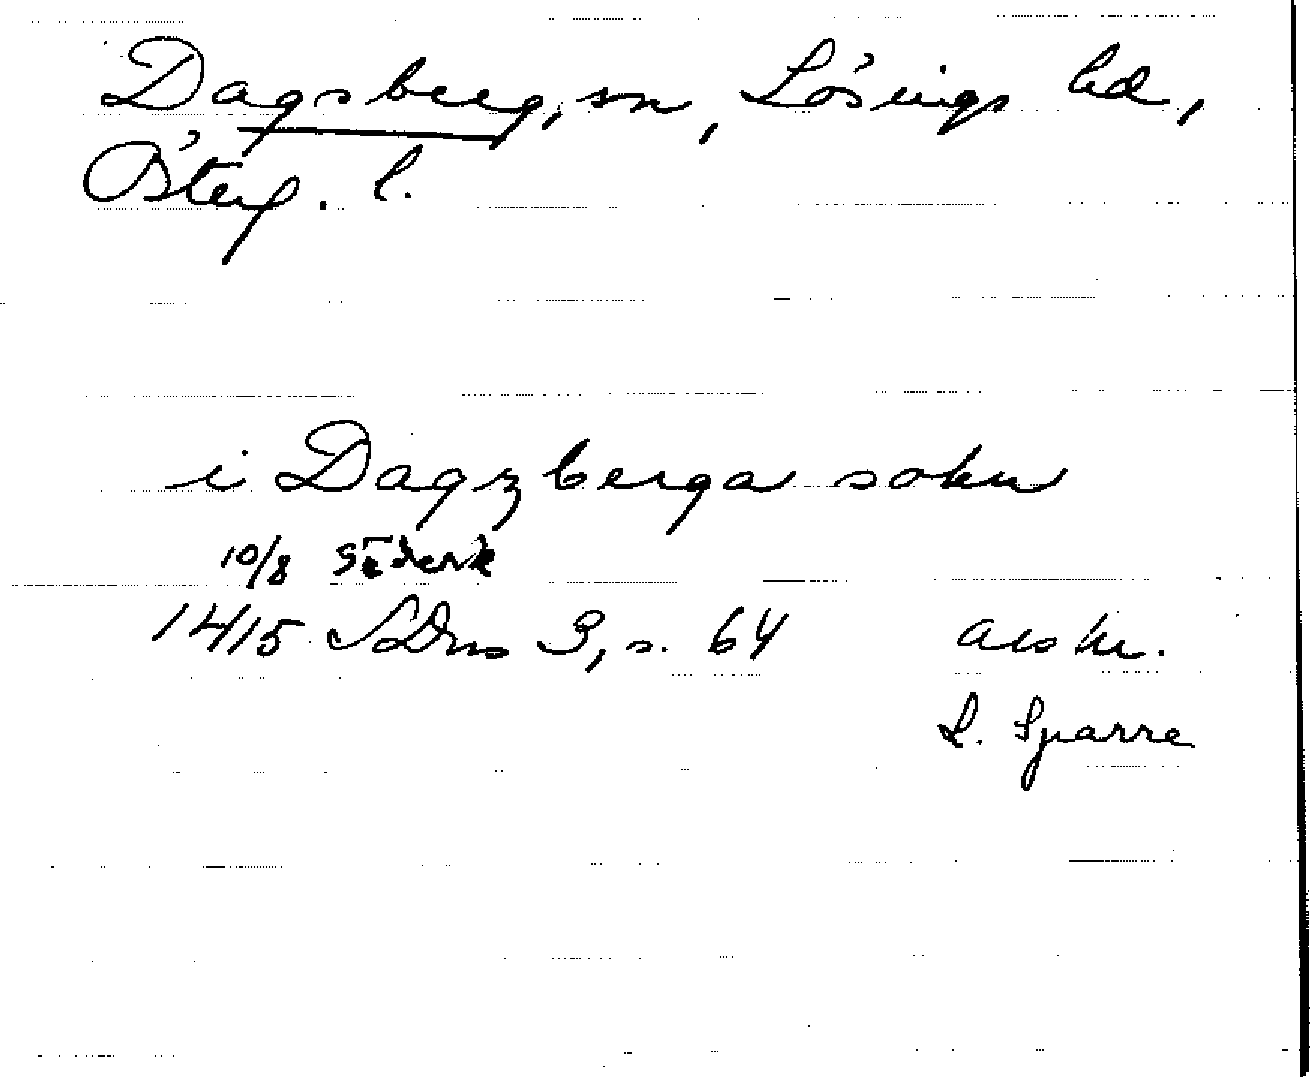 Dagsberg, sn, Lösings hd,
Österg. l.
i Dagzberga sokn
10/8 Söderk
1415 SDns 3, s. 64 avskr.
L. Sparre